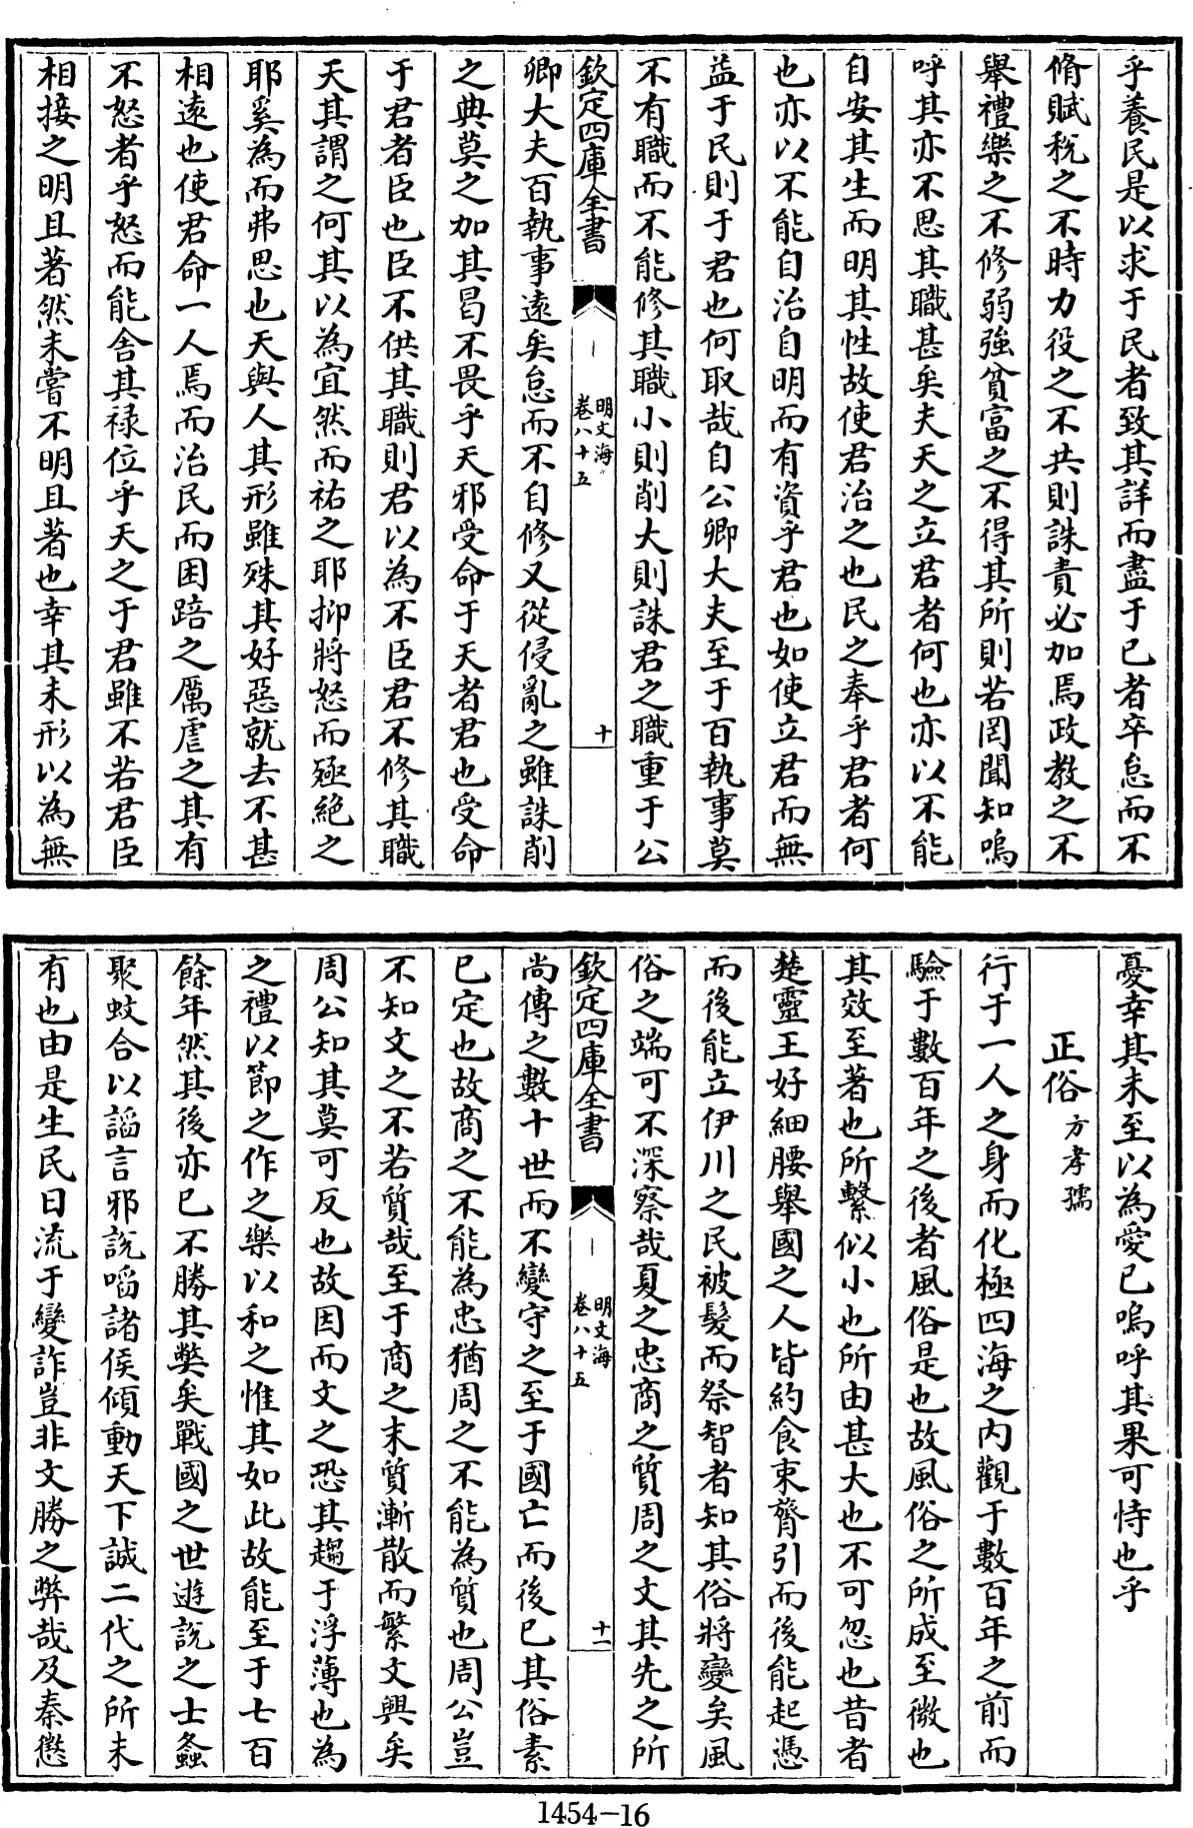 乎養民是以求于民者致其詳而盡于已者卒怠而不
脩賦稅之不時力役之不共則誅責必加焉政教之不
舉禮樂之不修弱強貧富之不得其所則若罔聞知嗚
呼其亦不思其職甚矣夫天之立君者何也亦以不能
自安其生而明其性故使君治之也民之奉乎君者何
也亦以不能自治自明而有資乎君也如使立君而無
益于民則于君也何取哉自公卿大夫至于百執事莫
不有職而不能修其職小則削大則誅君之職重于公
欽定四庫全書
明文海
卷八十五
十
卿大夫百執事遠矣怠而不自修又從侵亂之雖誅削
之典莫之加其曷不畏乎天邪受命于天者君也受命
于君者臣也臣不供其職則君以為不臣君不修其職
天其謂之何其以為宜然而祐之耶抑將怒而殛絶之
耶奚為而弗思也天與人其形雖殊其好惡就去不甚
相遠也使君命一人焉而治民而困踣之厲虐之其有
不怒者乎怒而能舍其祿位乎天之于君雖不若君臣
相接之明且著然未嘗不明且著也幸其未形以為無
憂幸其未至以為愛已嗚呼其果可恃也乎
正俗 方孝孺
行于一人之身而化極四海之內觀于數百年之前而
驗于數百年之後者風俗是也故風俗之所成至微也
其效至著也所繫似小也所由甚大也不可忽也昔者
楚靈王好細腰舉國之人皆約食束膂引而後能起憑
而後能立伊川之民被髮而祭智者知其俗將變矣風
俗之端可不深察哉夏之忠商之質周之文其先之所
欽定四庫全書
明文海
卷八十五
十一
尚傳之數十世而不變守之至于國亡而後已其俗素
已定也故商之不能為忠猶周之不能為質也周公豈
不知文之不若質哉至于商之末質漸散而繁文興矣
周公知其莫可反也故因而文之恐其趨于浮薄也為
之禮以節之作之樂以和之惟其如此故能至于七百
餘年然其後亦已不勝其弊矣戰國之世遊說之士螽
聚蚊合以謟言邪說㗖諸侯傾動天下誠二代之所未
有也由是生民日流于變詐豈非文勝之弊哉及秦懲
1454-16